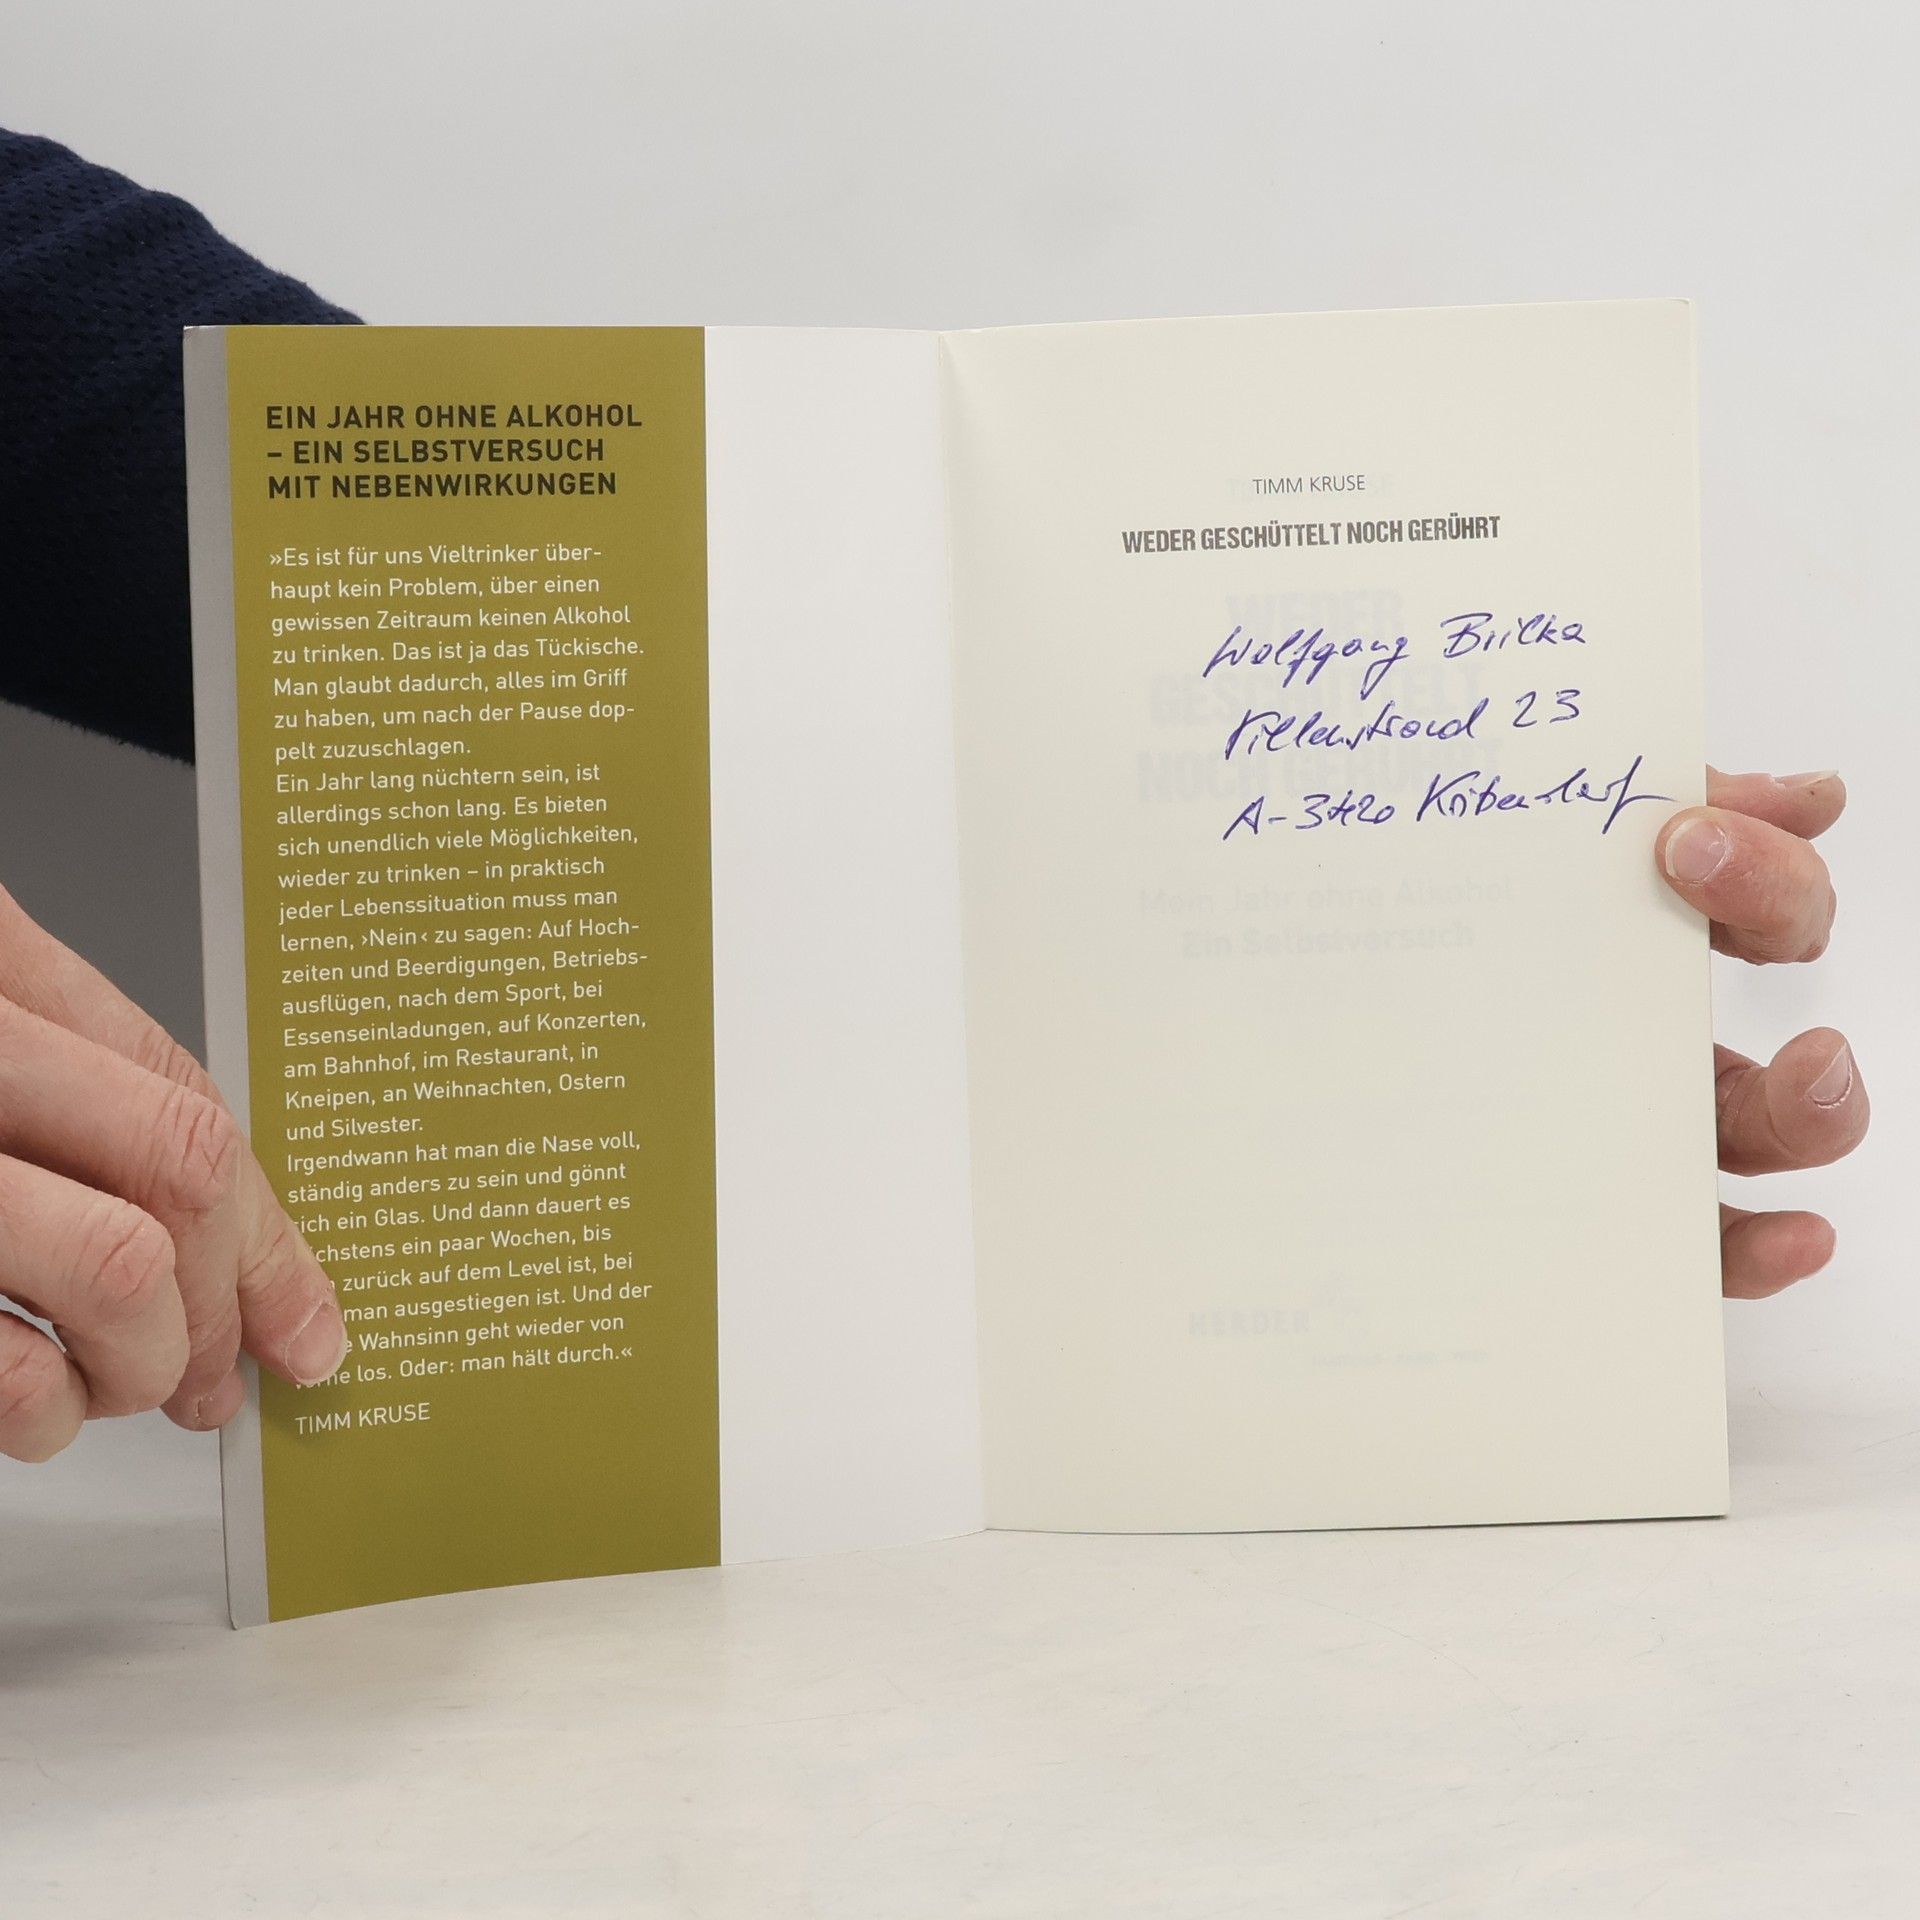 EIN JAHR OHNE ALKOHOL
– EIN SELBSTVERSUCH
MIT NEBENWIRKUNGEN
»Es ist für uns Vieltrinker über-
haupt kein Problem, über einen
gewissen Zeitraum keinen Alkohol
zu trinken. Das ist ja das Tückische.
Man glaubt dadurch, alles im Griff
zu haben, um nach der Pause dop-
pelt zuzuschlagen.
Ein Jahr lang nüchtern sein, ist
allerdings schon lang. Es bieten
sich unendlich viele Möglichkeiten,
wieder zu trinken – in praktisch
jeder Lebenssituation muss man
lernen, ›Nein‹ zu sagen: Auf Hoch-
zeiten und Beerdigungen, Betriebs-
ausflügen, nach dem Sport, bei
Essenseinladungen, auf Konzerten,
am Bahnhof, im Restaurant, in
Kneipen, an Weihnachten, Ostern
und Silvester.
Irgendwann hat man die Nase voll,
ständig anders zu sein und gönnt
ich ein Glas. Und dann dauert es
chstens ein paar Wochen, bis
zurück auf dem Level ist, bei
man ausgestiegen ist. Und der
Wahnsinn geht wieder von
ne los. Oder: man hält durch.«
TIMM KRUSE
TIMM KRUSE
WEDER GESCHÜTTELT NOCH GERÜHRT
Wolfgang
23
A-3420
WEDER
GESCHÜTTELT
NOCH GERÜHRT
Mein Jahr ohne Alkohol
Ein Selbstversuch
HERDER